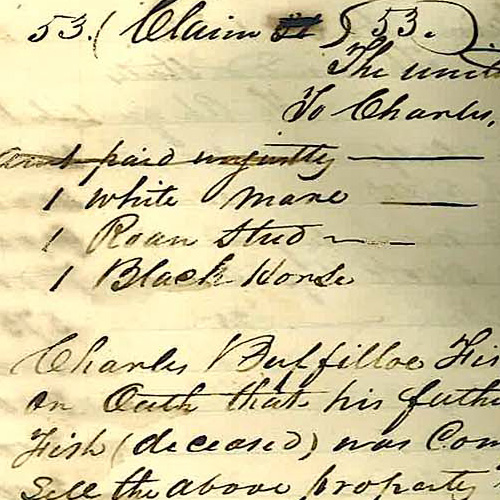 53. ( Claim ) 53.
The unit
To Charles,
amt paid unjustly
1 white mare
1 Roan Stud
1 Black Horse
Charles Buffilloe Fis
on Oath that his fathe
Fish (deceased) was Com
Sell the above property